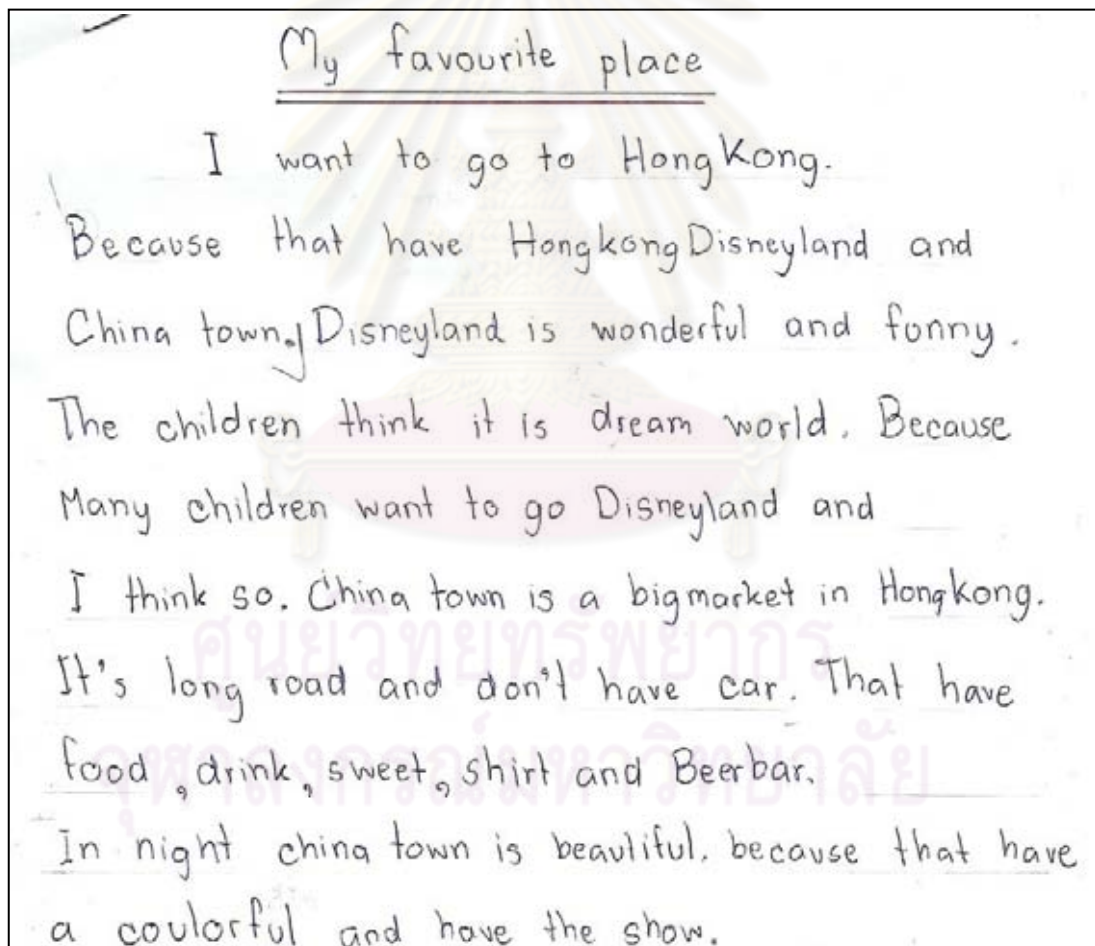 My favourite place
I want to go to Hong Kong.
Because that have Hongkong Disneyland and
China town. Disneyland is wonderful and fonny.
The children think it is dream world. Because
Many children want to go Disneyland and
I think so. China town is a bigmarket in Hongkong.
It's long road and don't have car. That have
food, drink, sweet, shirt and Beerbar.
In night china town is beautiful. because that have
a coulorful and have the show.
ศูนย์วิทยทรัพยากร
จุฬาลงกรณ์มหาวิทยาลัย